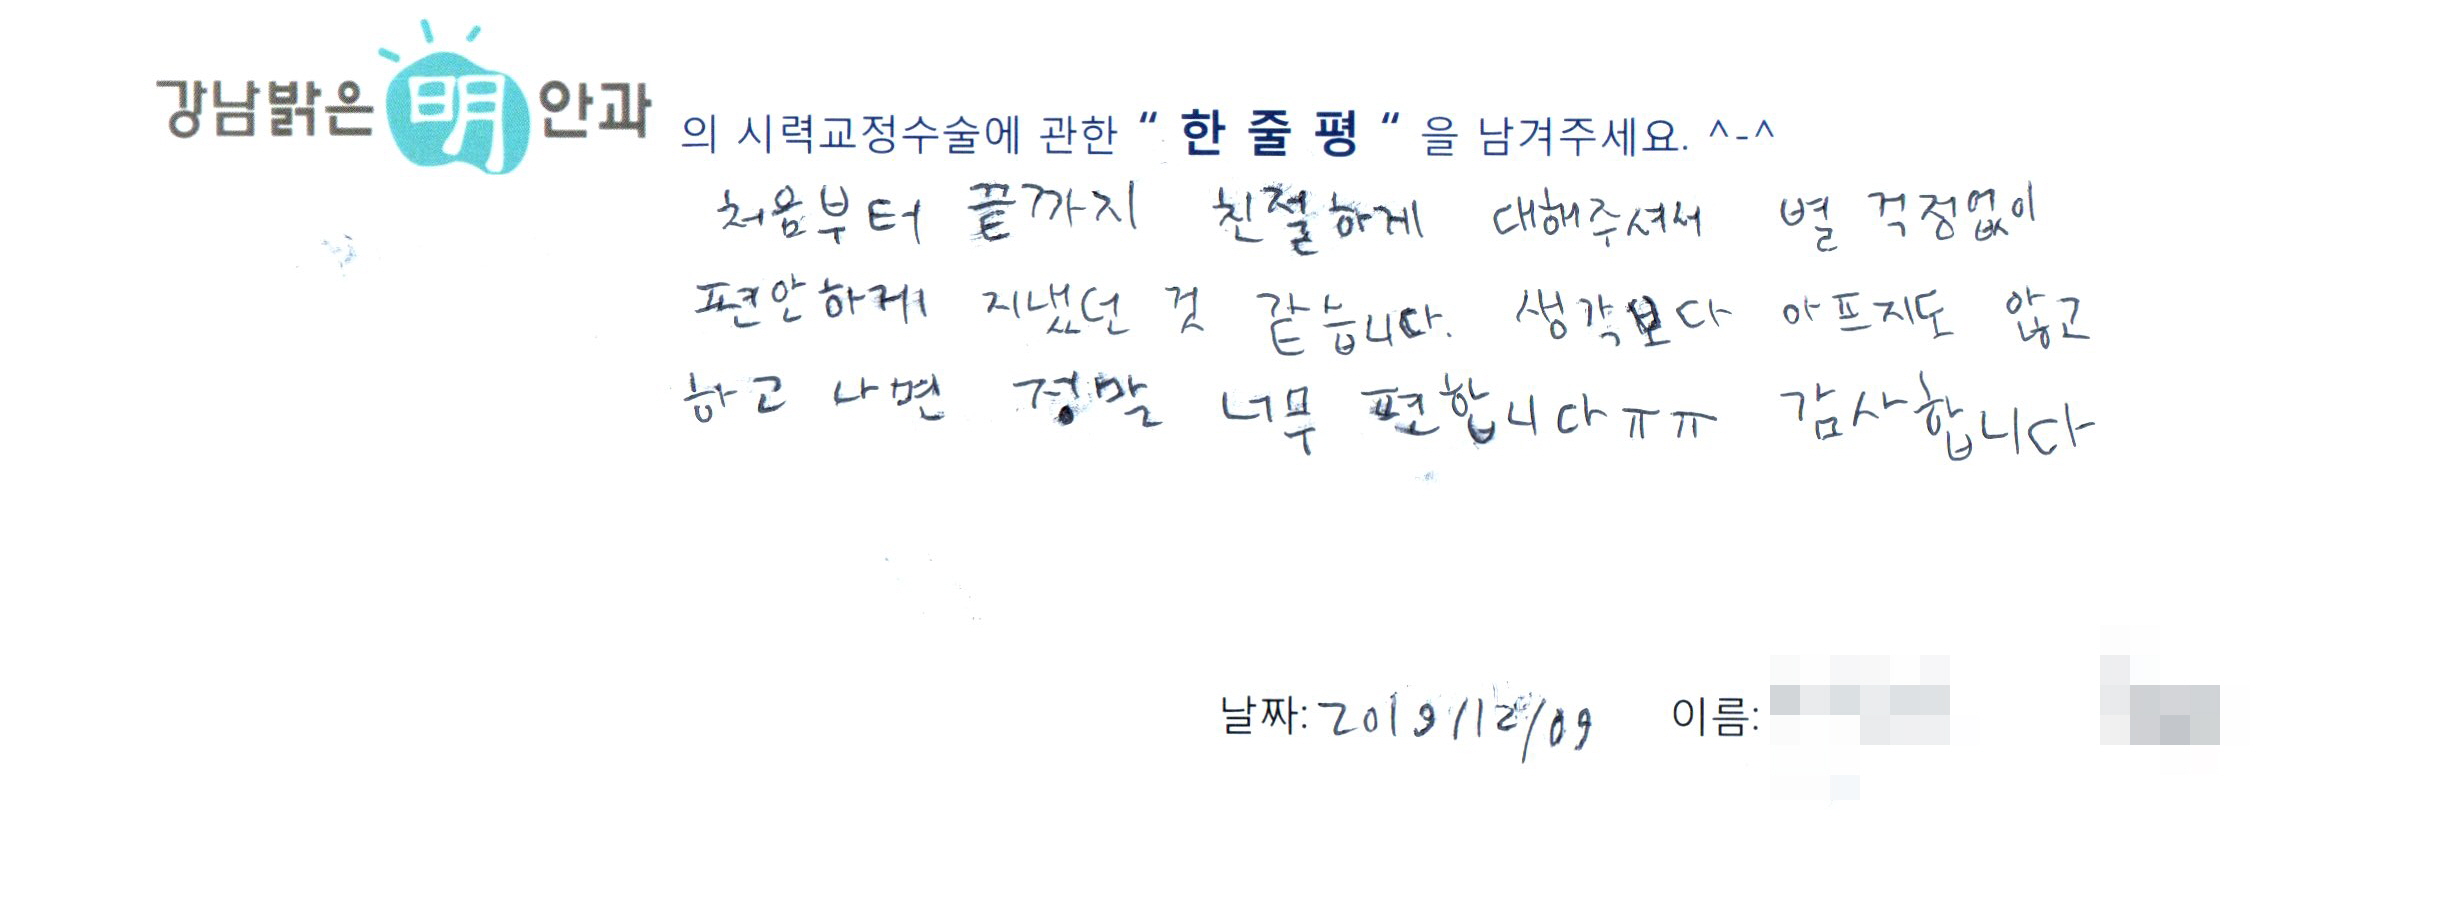 강남밝은明안과 의 시력교정수술에 관한 “ 한 줄 평 “ 을 남겨주세요. ^-^
처음부터 끝까지 친절하게 대해주셔서 별 걱정없이
편안하게 지냈던 것 같습니다. 생각보다 아프지도 않고
하고 나면 정말 너무 편합니다ㅠㅠ 감사합니다
날짜: 2019/12/09 이름: